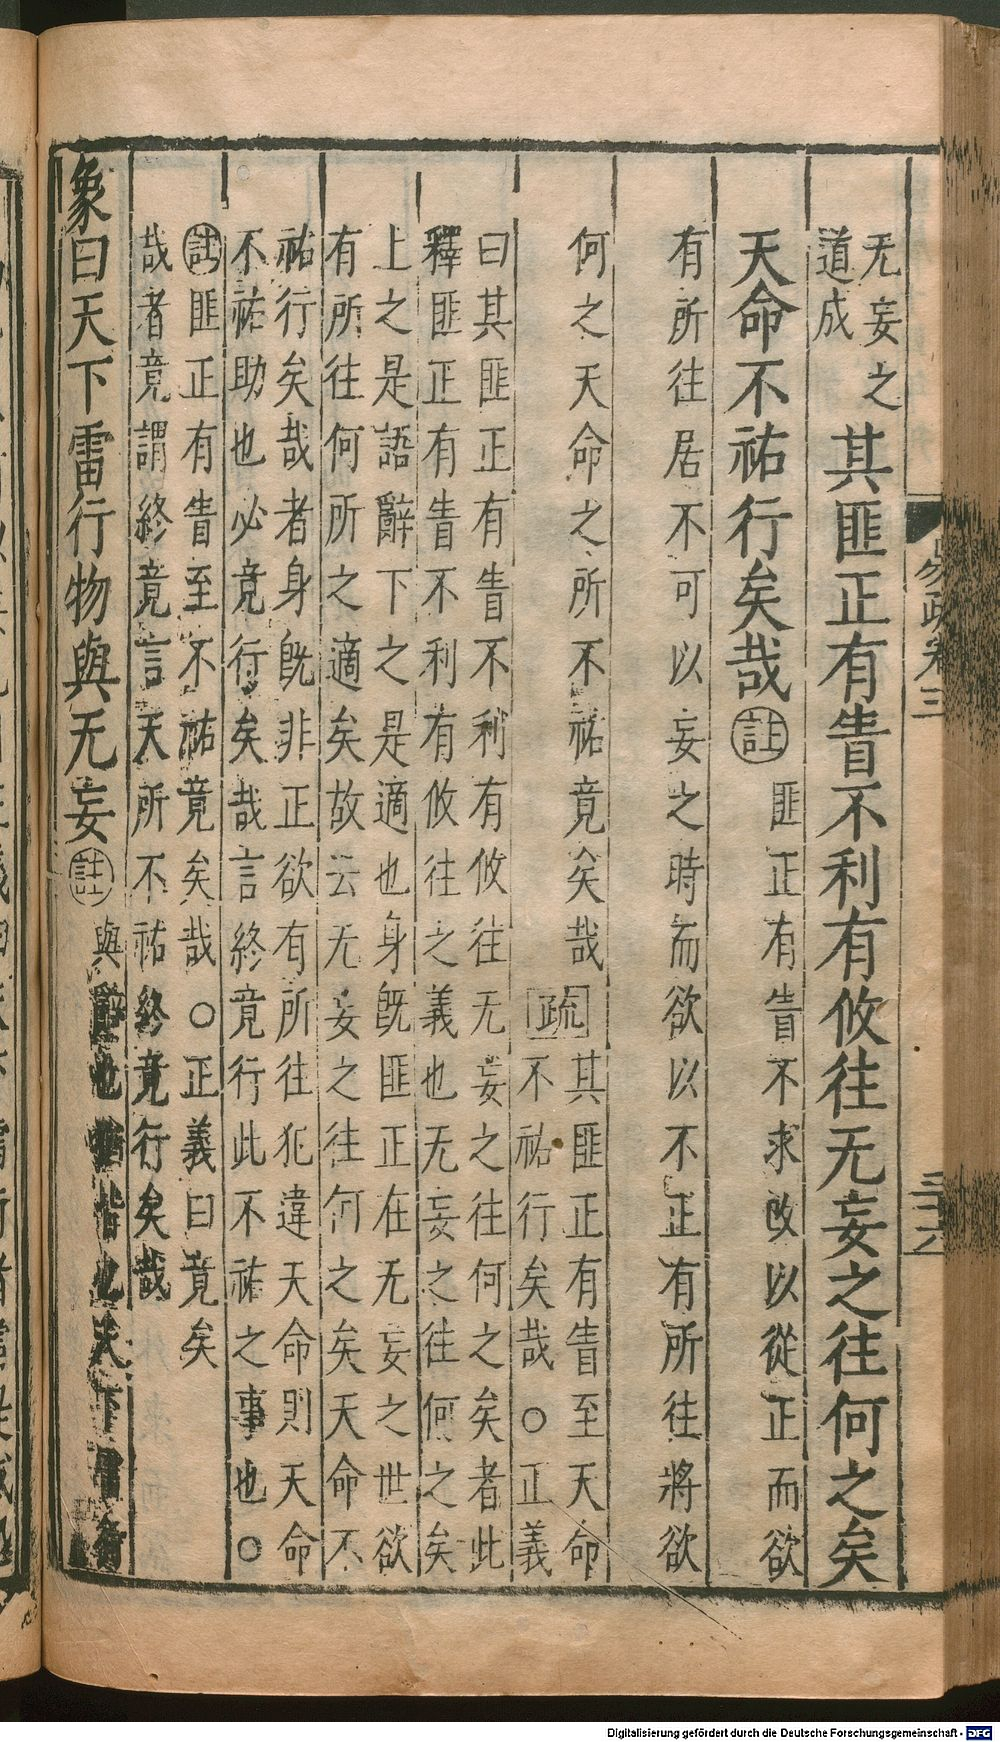 无妄之
道成
其匪正有眚不利有攸往无妄之往何之矣
天命不祐行矣哉
註
匪正有眚不求改以從正而欲
有所往居不可以妄之時而欲以不正有所往將欲
何之天命之所不祐竟矣哉
疏
其匪正有眚至天命
不祐行矣哉○正義
曰其匪正有眚不利有攸往无妄之往何之矣者此
釋匪正有眚不利有攸往之義也无妄之往何之矣
上之是語辭下之是適也身旣匪正在无妄之世欲
有所往何所之適矣故云无妄之往何之矣天命不
祐行矣哉者身旣非正欲有所往犯違天命則天命
不祐助也必竟行矣哉言終竟行此不祐之事也○
註匪正有眚至不祐竟矣哉○正義曰竟矣
哉者竟謂終竟言天所不祐終竟行矣哉
象曰天下雷行物與无妄
註
與辭也猶皆也天下雷行
易疏卷三
三十六
Digitalisierung gefördert durch die Deutsche Forschungsgemeinschaft - DFG